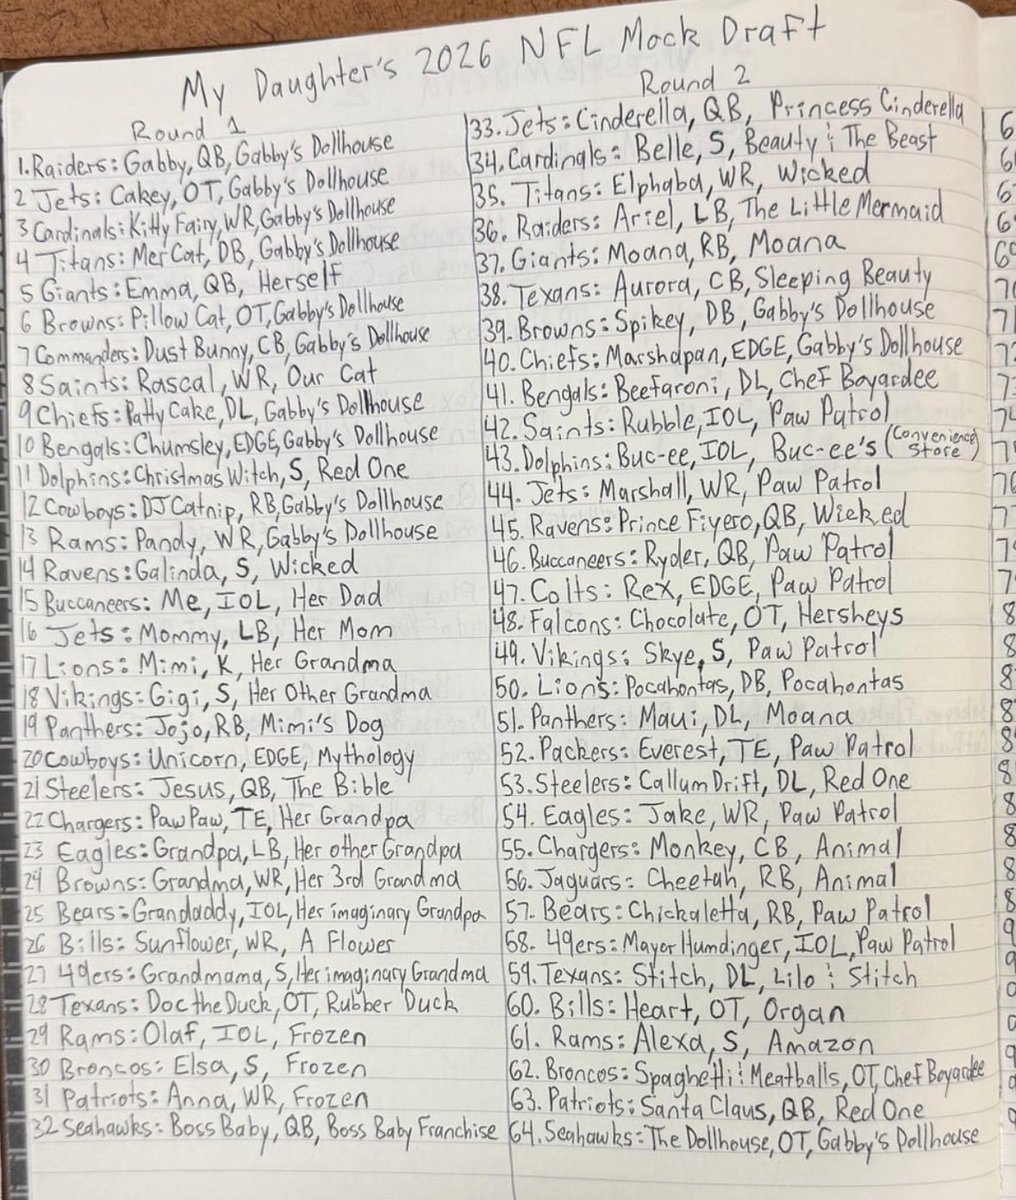 My Daughter's 2026 NFL Mock Draft
Round 1
1. Raiders: Gabby, QB, Gabby's Dollhouse
2 Jets: Cakey, OT, Gabby's Dollhouse
3 Cardinals: Kitty Fairy, WR, Gabby's Dollhouse
4 Titans: MerCat, DB, Gabby's Dollhouse
5 Giants: Emma, QB, Herself
6 Browns: Pillow Cat, OT, Gabby's Dollhouse
7 Commanders: Dust Bunny, CB, Gabby's Dollhouse
8 Saints: Rascal, WR, Our Cat
9 Chiefs: Patty Cake, DL, Gabby's Dollhouse
10 Bengals: Chumsley, EDGE, Gabby's Dollhouse
11 Dolphins: Christmas Witch, S, Red One
12 Cowboys: DJ Catnip, RB, Gabby's Dollhouse
13 Rams: Pandy, WR, Gabby's Dollhouse
14 Ravens: Galinda, S, Wicked
15 Buccaneers: Me, IOL, Her Dad
16 Jets: Mommy, LB, Her Mom
17 Lions: Mimi, K, Her Grandma
18 Vikings: Gigi, S, Her Other Grandma
19 Panthers: Jojo, RB, Mimi's Dog
20 Cowboys: Unicorn, EDGE, Mythology
21 Steelers: Jesus, QB, The Bible
22 Chargers: PawPaw, TE, Her Grandpa
23 Eagles: Grandpa, LB, Her other Grandpa
24 Browns: Grandma, WR, Her 3rd Grandma
25 Bears: Grandaddy, IOL, Her imaginary Grandpa
26 Bills: Sunflower, WR, A Flower
27 49ers: Grandmama, S, Her imaginary Grandma
28 Texans: Doc the Duck, OT, Rubber Duck
29 Rams: Olaf, IOL, Frozen
30 Broncos: Elsa, S, Frozen
31 Patriots: Anna, WR, Frozen
32 Seahawks: Boss Baby, QB, Boss Baby Franchise
Round 2
33. Jets: Cinderella, QB, Princess Cinderella
34. Cardinals: Belle, S, Beauty & The Beast
35. Titans: Elphaba, WR, Wicked
36. Raiders: Ariel, LB, The Little Mermaid
37. Giants: Moana, RB, Moana
38. Texans: Aurora, CB, Sleeping Beauty
39. Browns: Spikey, DB, Gabby's Dollhouse
40. Chiefs: Marshapan, EDGE, Gabby's Dollhouse
41. Bengals: Beefaroni, DL, Chef Boyardee
42. Saints: Rubble, IOL, Paw Patrol
43. Dolphins: Buc-ee, IOL, Buc-ee's (Convenience Store)
44. Jets: Marshall, WR, Paw Patrol
45. Ravens: Prince Fiyero, QB, Wicked
46. Buccaneers: Ryder, QB, Paw Patrol
47. Colts: Rex, EDGE, Paw Patrol
48. Falcons: Chocolate, OT, Hersheys
49. Vikings: Skye, S, Paw Patrol
50. Lions: Pocahontas, DB, Pocahontas
51. Panthers: Maui, DL, Moana
52. Packers: Everest, TE, Paw Patrol
53. Steelers: Callum Drift, DL, Red One
54. Eagles: Jake, WR, Paw Patrol
55. Chargers: Monkey, CB, Animal
56. Jaguars: Cheetah, RB, Animal
57. Bears: Chickaletta, RB, Paw Patrol
58. 49ers: Mayor Humdinger, IOL, Paw Patrol
59. Texans: Stitch, DL, Lilo & Stitch
60. Bills: Heart, OT, Organ
61. Rams: Alexa, S, Amazon
62. Broncos: Spaghetti & Meatballs, OT, Chef Boyardee
63. Patriots: Santa Claus, QB, Red One
64. Seahawks: The Dollhouse, OT, Gabby's Dollhouse